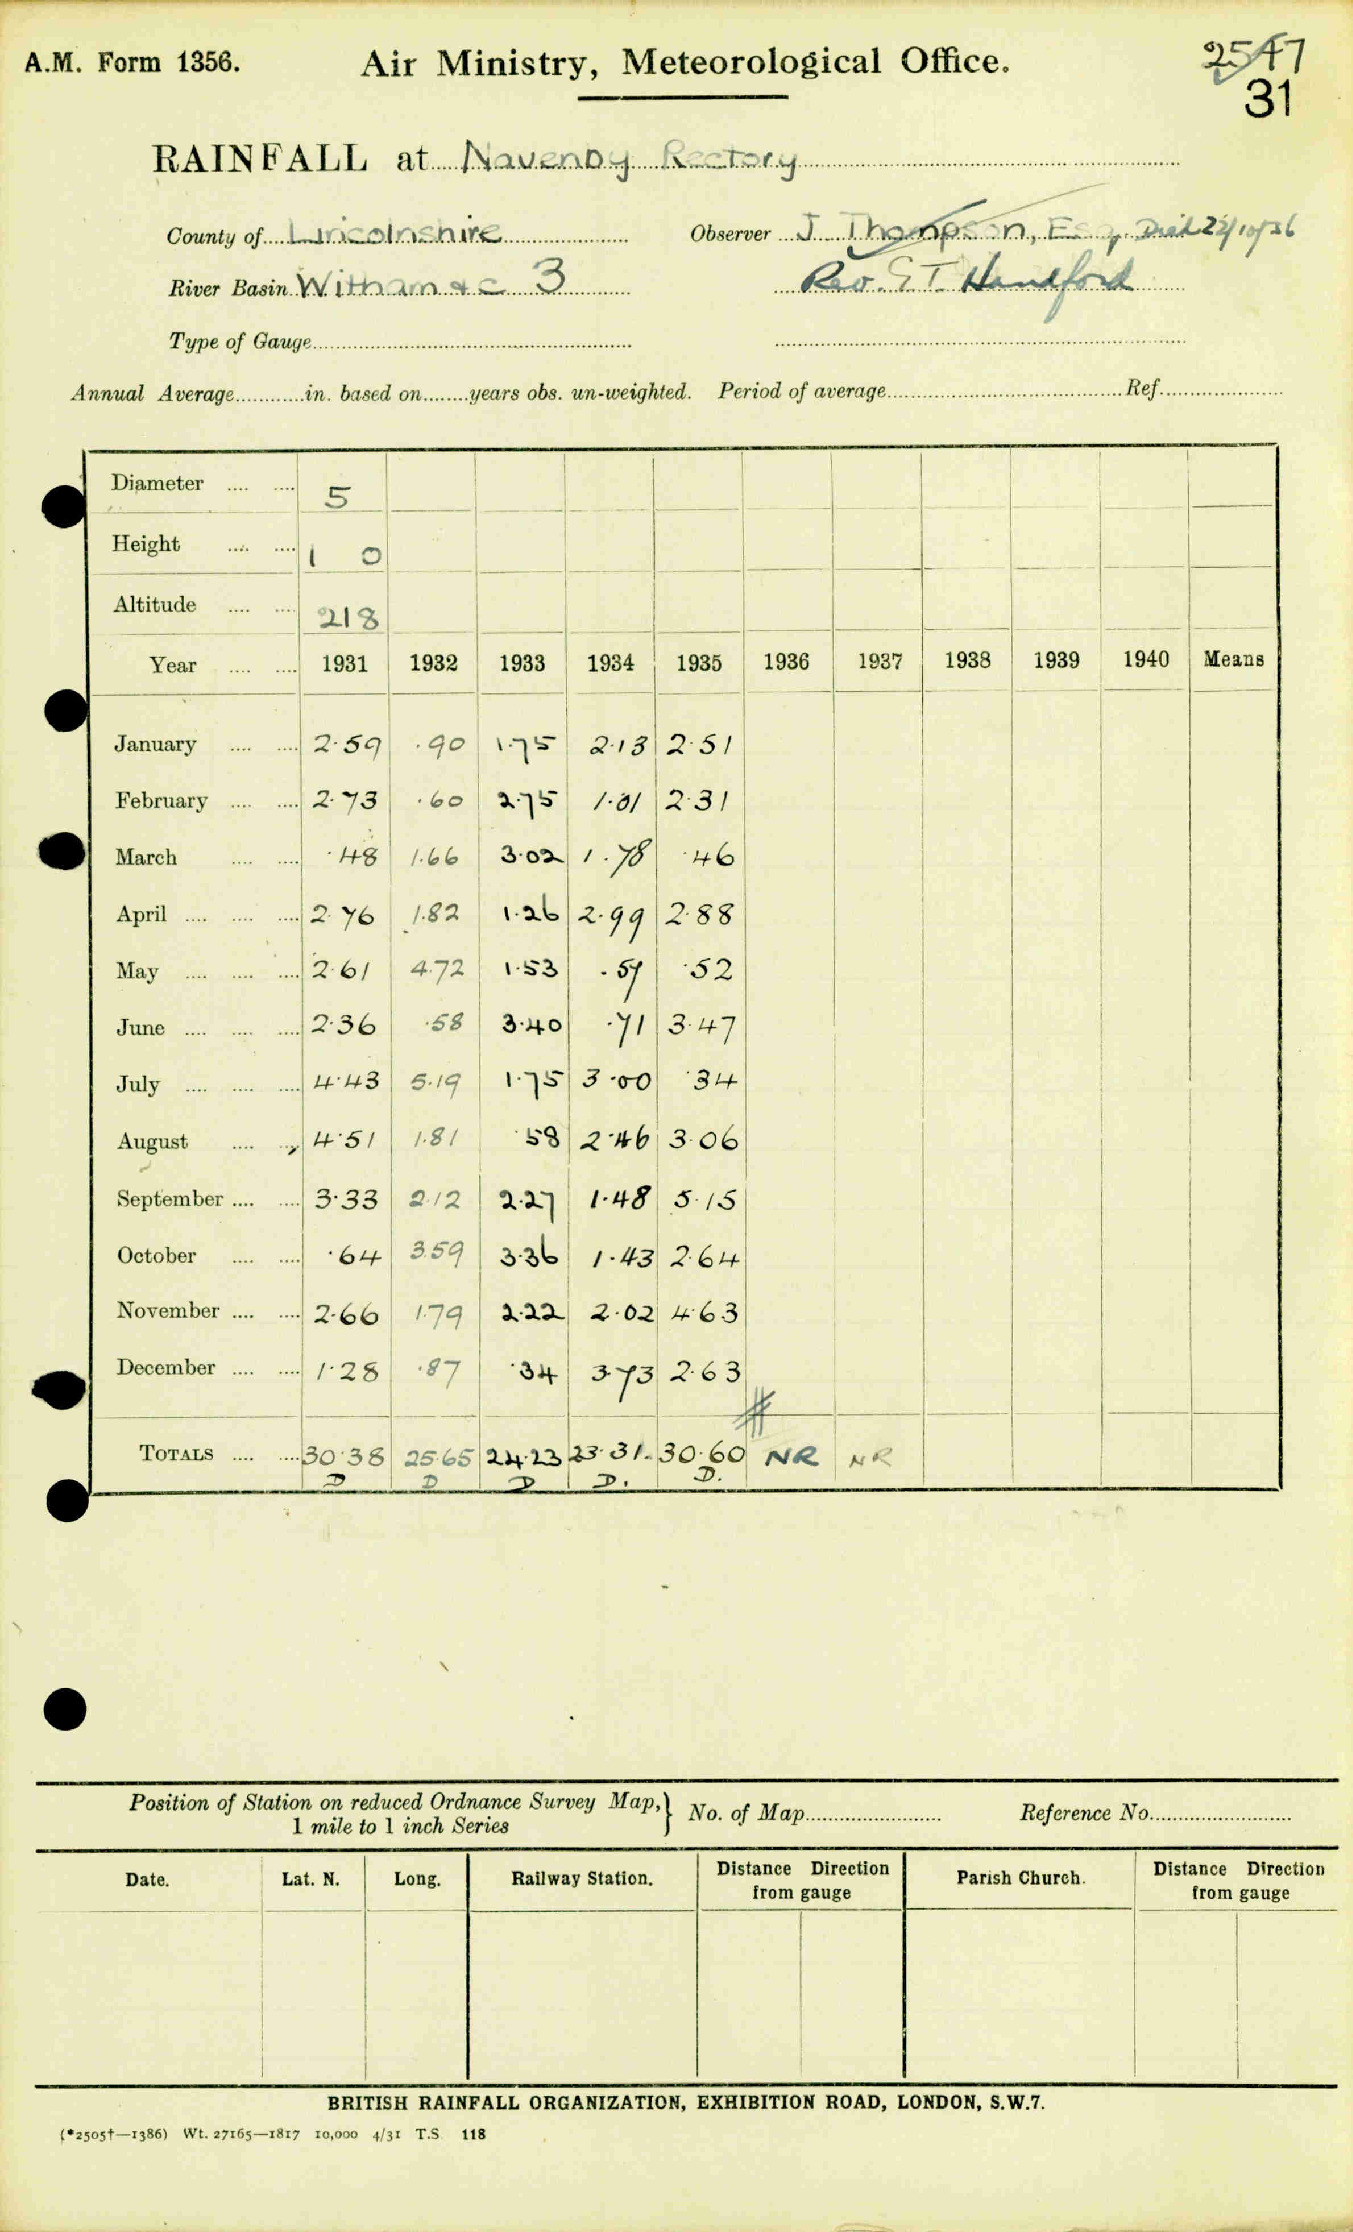 A.M. Form 1356. Air Ministry, Meteorological Office. 2547
31
RAINFALL at Navenby Rectory
County of Lincolnshire Observer J Thompson, Esq, Died 22/10/36
River Basin Witham &c 3 Rev. G T. Handford
Type of Gauge
Annual Average in. based on years obs. un-weighted. Period of average Ref.
Diameter 5
Height 1 0
Altitude 218
Year 1931 1932 1933 1934 1935 1936 1937 1938 1939 1940 Means
January 2.59 .90 1.75 2.13 2.51
February 2.73 .60 2.75 1.01 2.31
March .48 1.66 3.02 1.78 .46
April 2.76 1.82 1.26 2.99 2.88
May 2.61 4.72 1.53 .57 .52
June 2.36 .58 3.40 .71 3.47
July 4.43 5.19 1.75 3.00 .34
August 4.51 1.81 .58 2.46 3.06
September 3.33 2.12 2.27 1.48 5.15
October .64 3.59 3.36 1.43 2.64
November 2.66 1.79 2.22 2.02 4.63
December 1.28 .87 .34 3.73 2.63
TOTALS 30.38 25.65 24.23 23.31. 30.60 NR NR
D D D D. D.
Position of Station on reduced Ordnance Survey Map,} No. of Map Reference No.
1 mile to 1 inch Series
Date. Lat. N. Long. Railway Station. Distance Direction Parish Church. Distance Direction
from gauge from gauge
BRITISH RAINFALL ORGANIZATION, EXHIBITION ROAD, LONDON, S.W.7.
(*2505†—1386) Wt. 27165—1817 10,000 4/31 T.S. 118